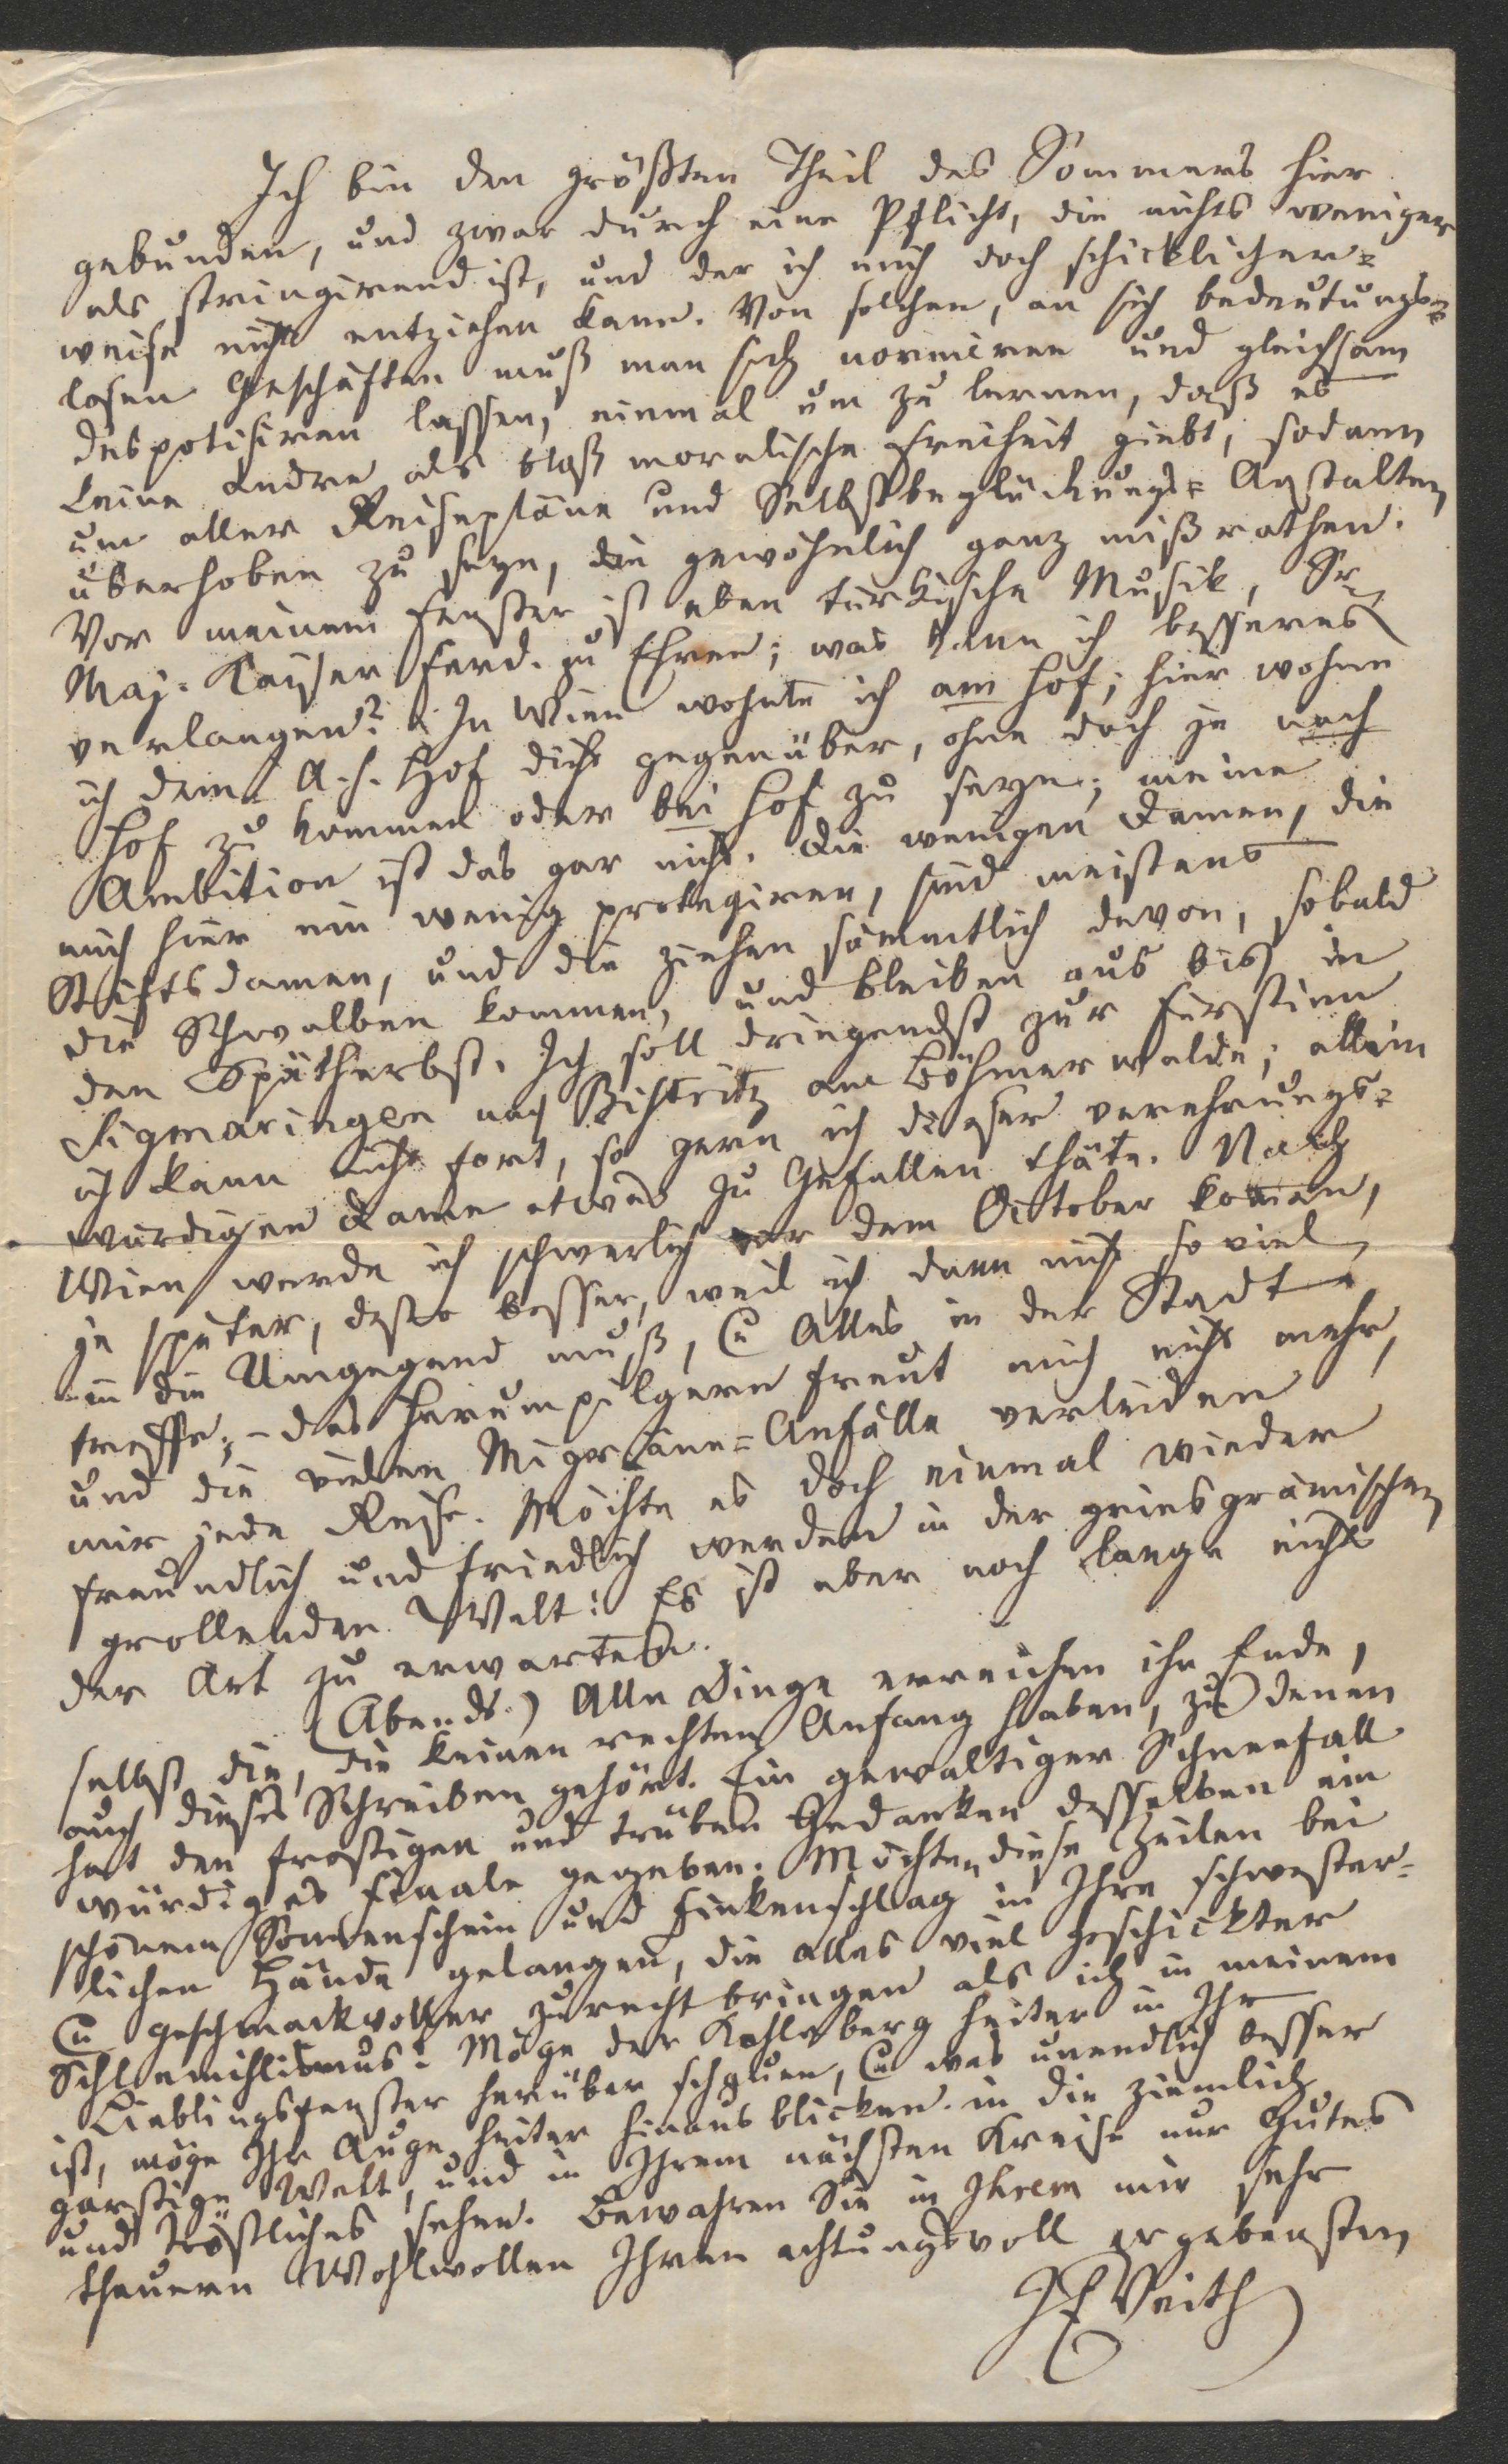 Ich bin den größten Theil des Sommers hier
gebunden, und zwar durch eine Pflicht, die nichts weniger
als stringirend ist, und der ich mich doch schicklicher=
weise nicht entziehen kann. Von solchen, an sich bedeutungs=
losen Geschäften muß man sich normiren und gleichsam
despotisiren lassen, einmal um zu lernen, daß es
keine andre als bloß moralische Freiheit giebt, sodann
um aller Reisepläne und Selbstbeglückungs=Anstalten
überhoben zu seyn, die gewöhnlich ganz mißrathen.
Vor meinem Fenster ist eben türkische Musik, Sr
Maj. Kaiser Ferd. zu Ehren; was kann ich besseres
verlangen? In Wien wohnte ich am Hof; hier wohne
ich dem A. h. Hof dicht gegenüber, ohne doch je nach
Hof zu kommen oder bei Hof zu seyn; meine
Ambition ist das gar nicht. Die wenigen Damen, die
mich hier ein wenig protegiren, sind meistens
Stiftsdamen, und die ziehen sämmtlich davon, sobald
die Schwalben kommen, und bleiben aus bis in
den Spätherbst. Ich soll dringendst zur Fürstinn
Sigmaringen nach Bistritz am Böhmerwalde; allein
ich kann nicht fort, so gern ich dieser verehrungs=
würdigen Dame etwas zu Gefallen thäte. Nach
Wien werde ich schwerlich vor dem October koman,
je später, desto besser, weil ich dann nicht so viel
in die Umgegend muß, & Alles in der Stadt
treffe; – das Herumpilgern freut mich nicht mehr,
und die vielen Migräne=Anfälle verleiden
mir jede Reise. Möchte es doch einmal wieder
freundlich und friedlich werden in der griesgrämischen
grollenden Welt! Es ist aber noch lange nicht
der Art zu erwarten.
(Abends.) Alle Dinge erreichen ihr Ende,
selbst die, die keinen rechten Anfang haben, zu denen
auch dieses Schreiben gehört. Ein gewaltiger Schneefall
hat den frostigen und trüben Gedanken desselben ein
würdiges Finale gegeben. Möchten diese Zeilen bei
schönem Sonnenschein und Finkenschlag in Ihre schwester=
lichen Hände gelangen, die alles viel geschickter
& geschmackvoller zurechtbringen als ich in meinem
Schlemihlismus! Möge der Kahlnberg heiter in Ihr
Lieblingsfenster herüber schauen, & was unendlich besser
ist, möge Ihr Auge heiter hinaus blicken in die ziemlich
garstige Welt, und in Ihrem nächsten Kreise nur Gutes
und Tröstliches sehen. Bewahren Sie in Ihrem mir sehr
theuern Wohlwollen Ihren achtungsvoll ergebensten
JE Veith